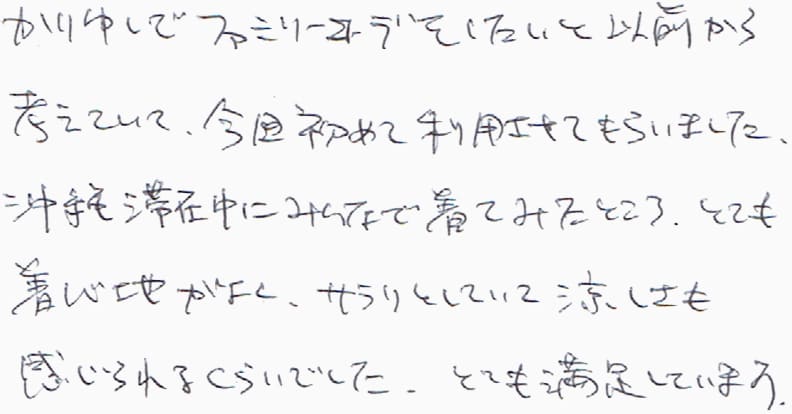 かりゆしでファミリーコーデをしたいと以前から
考えていて、今回初めて利用させてもらいました、
沖縄滞在中にみんなで着てみたところ、とても
着心地がよく、サラリとしていて涼しさも
感じられるくらいでした。とても満足しています。